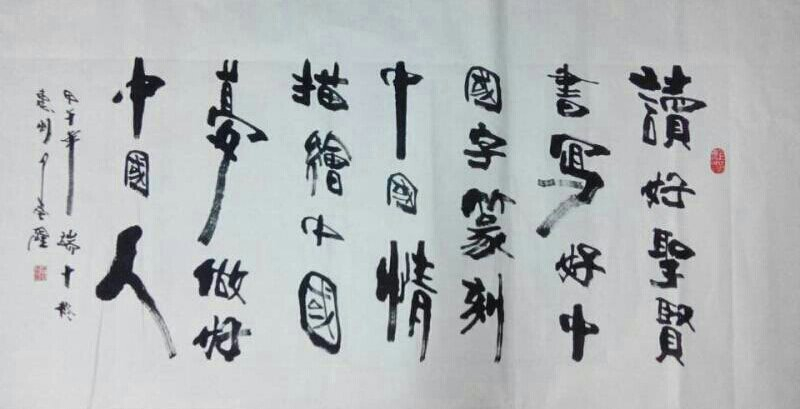 讀好聖賢
書寫好中
國字篆刻
中国情
描繪中國
夢做好
中國人
甲午年